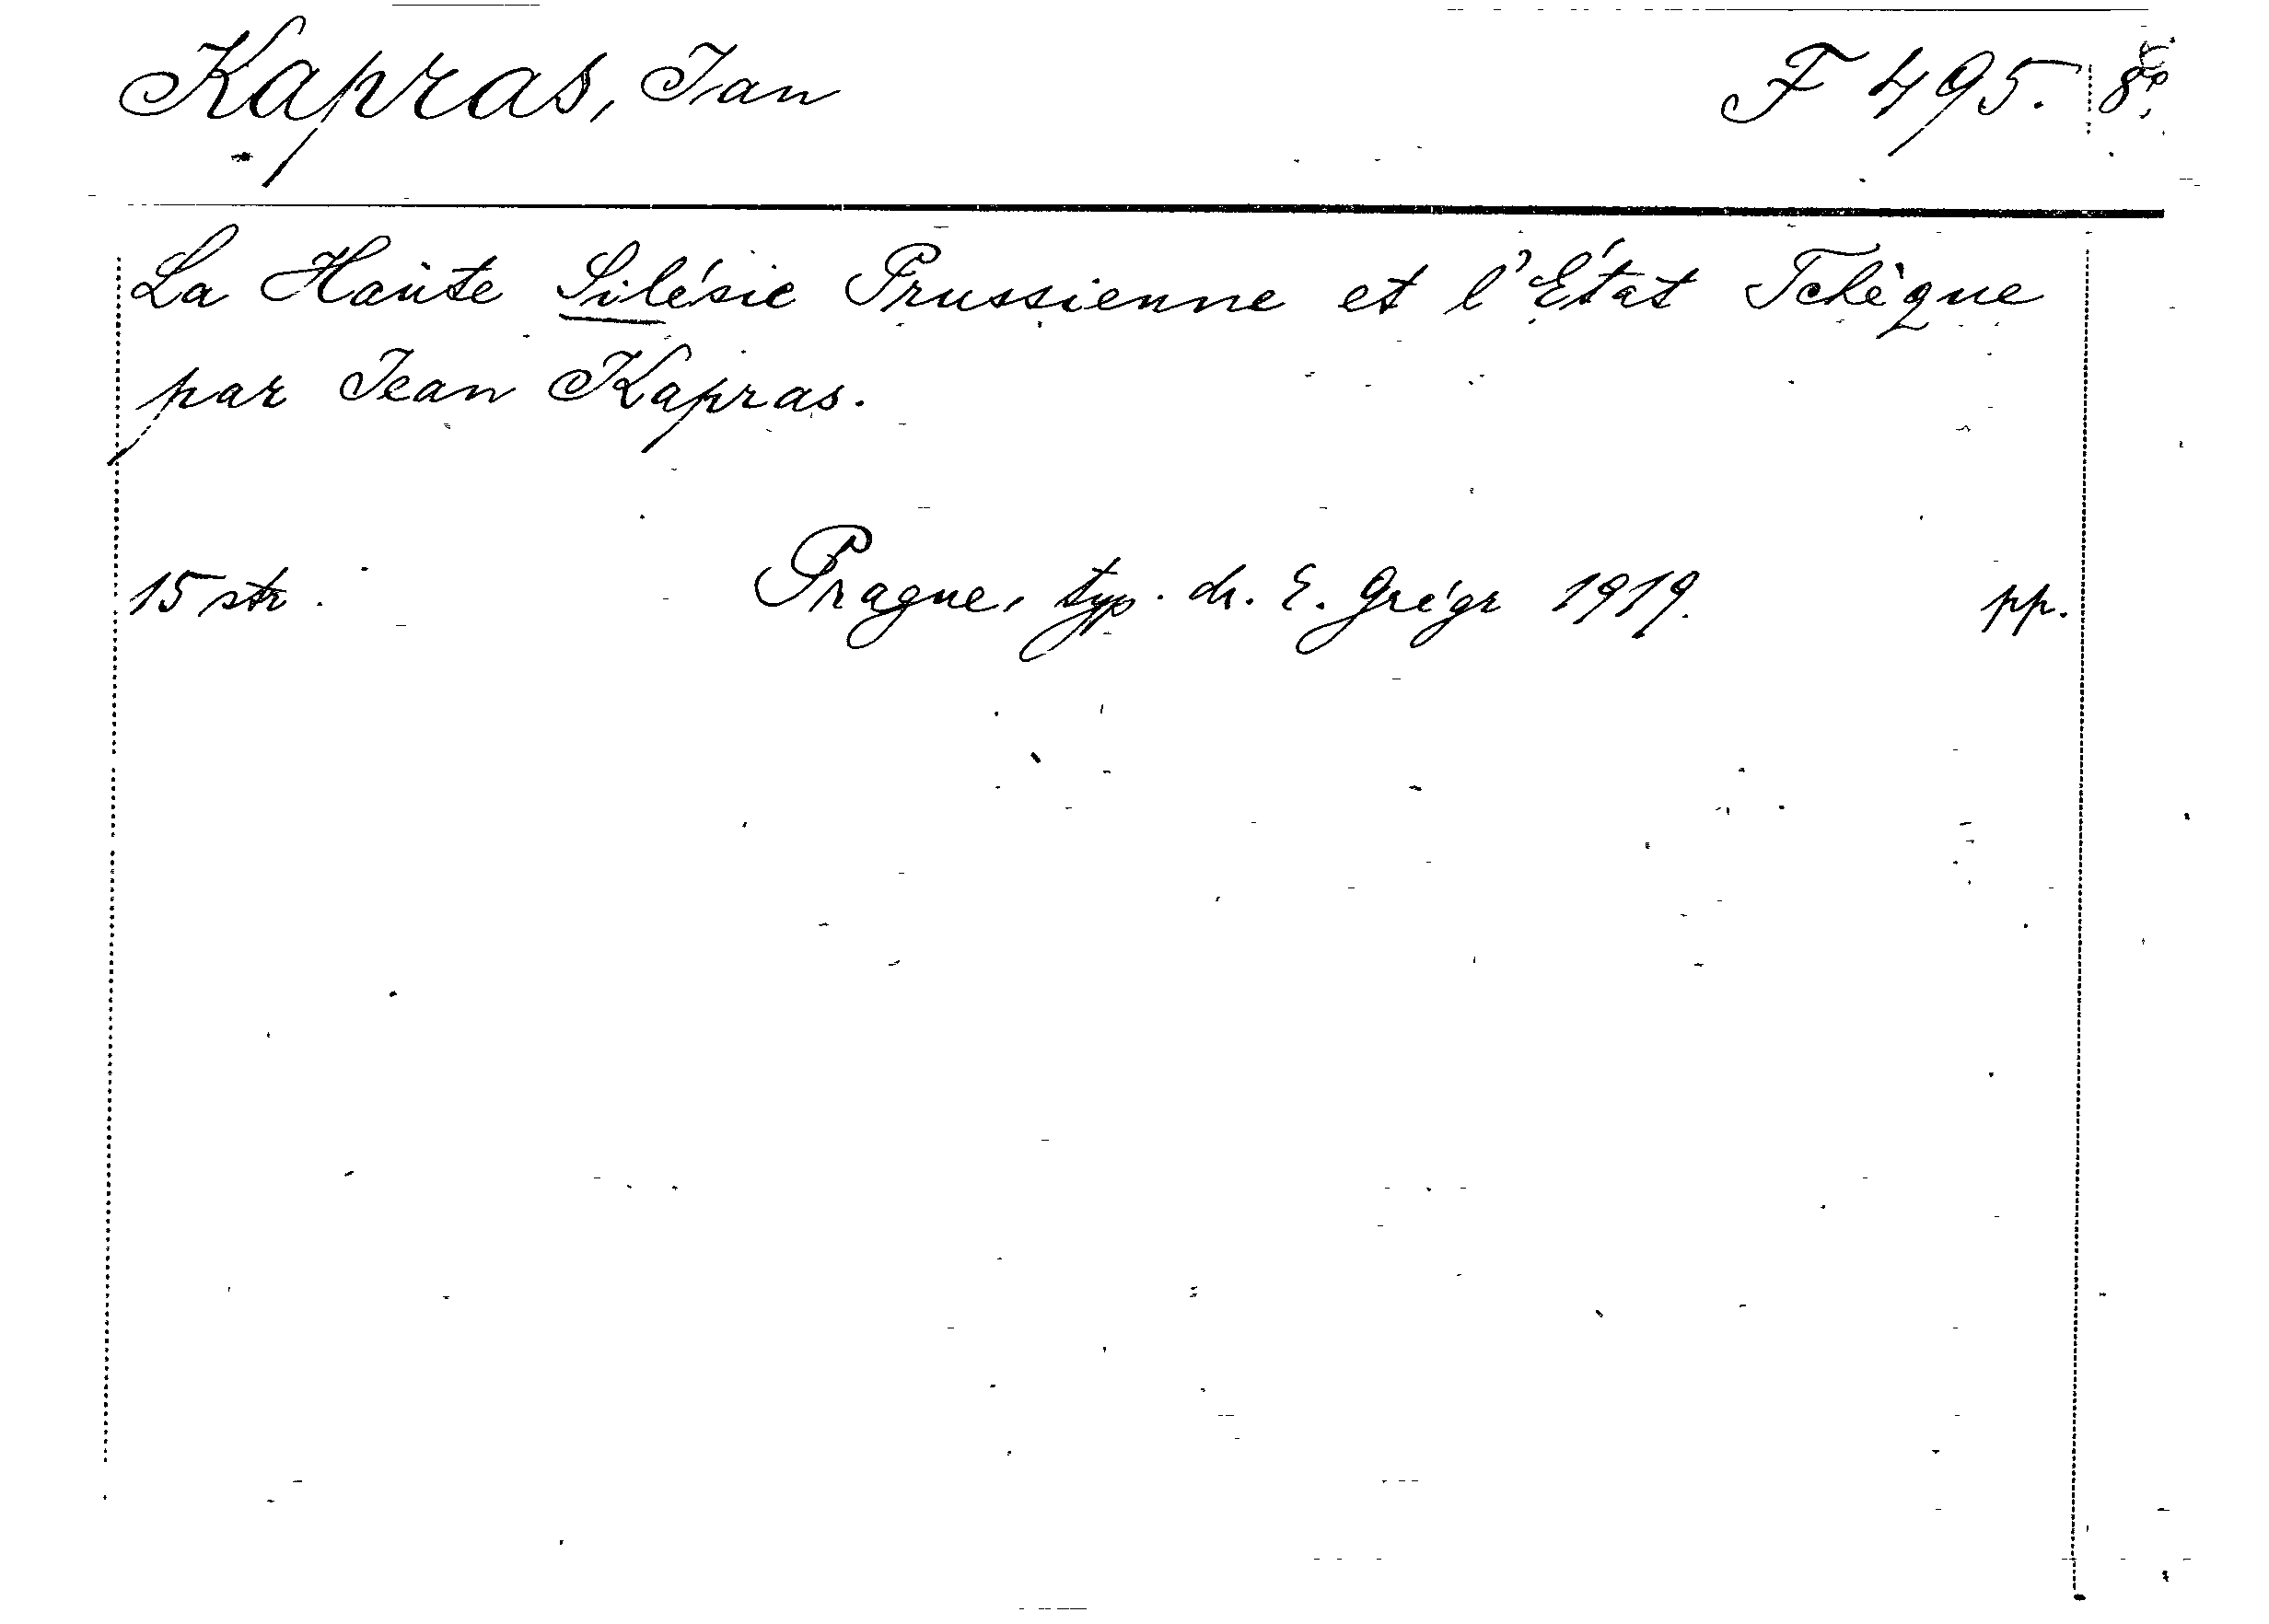 Kapras, Jan F 495. 8°.
La Haute Silésie Prussienne et l'État Tchèque
par Jean Kapras.
15 str. Prague, typ. dr. E. Grégr 1919. pp.